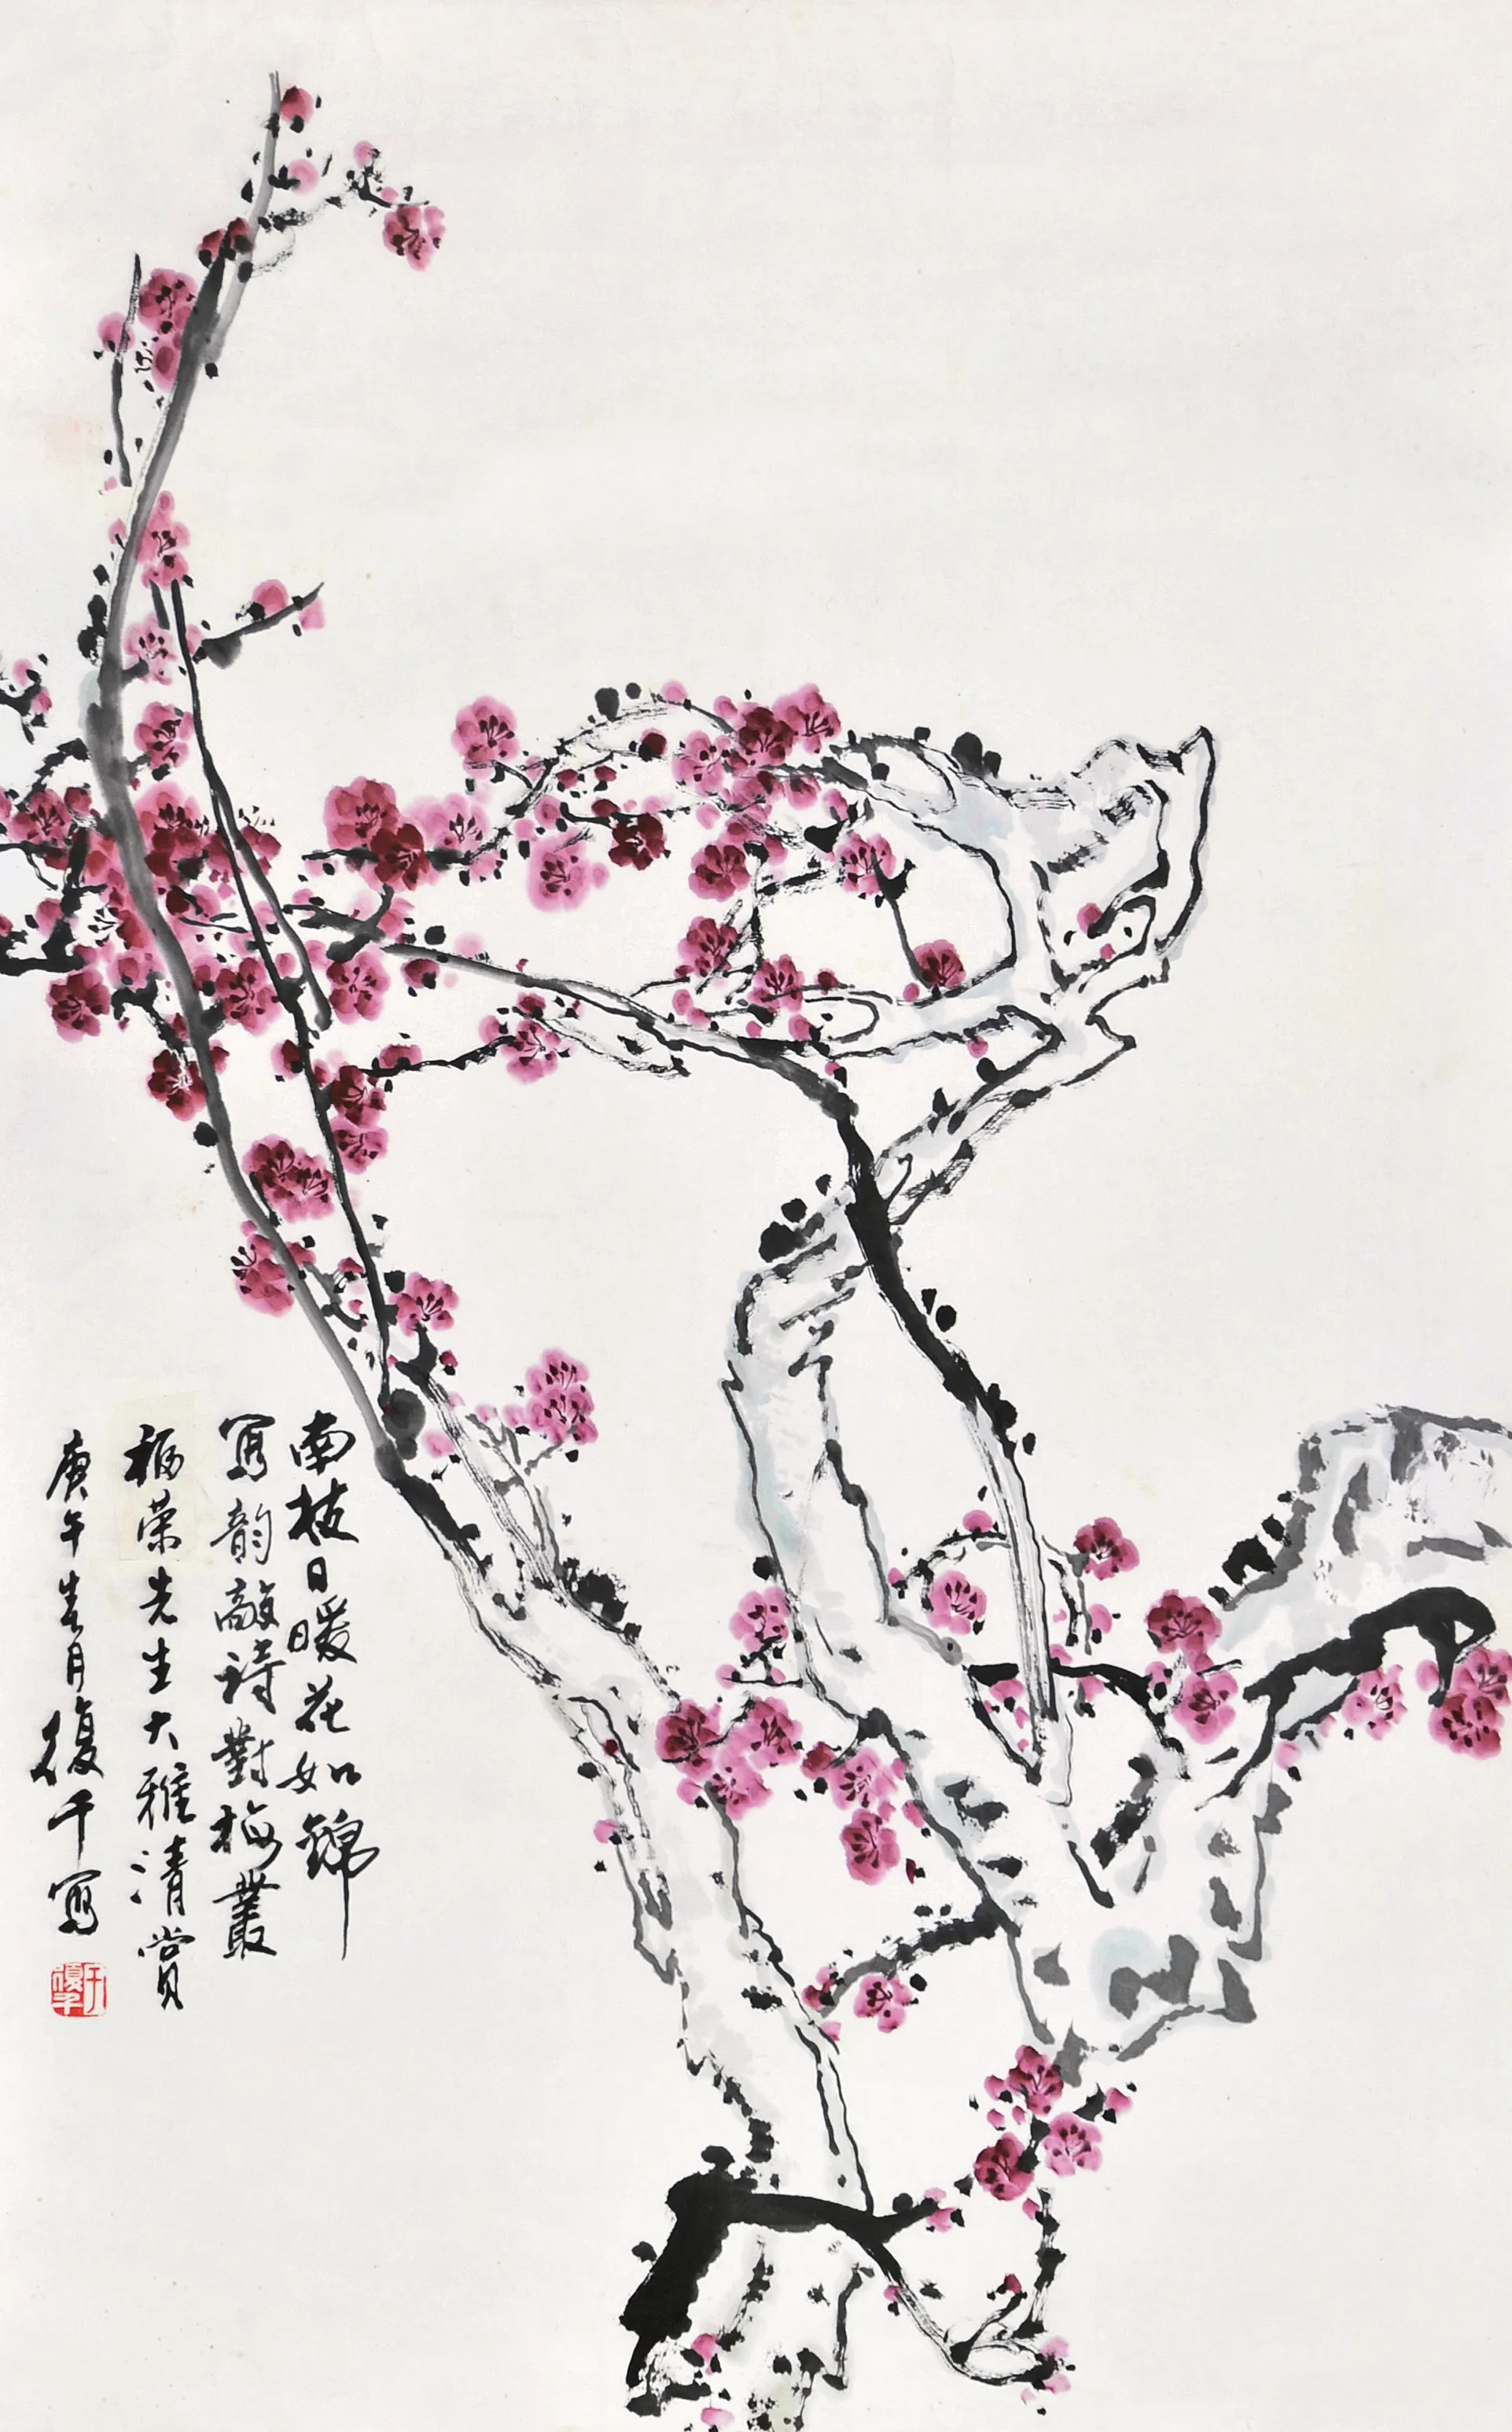 南枝日暖花如錦
寫韵敲詩對梅叢
福荣先生大雅清賞
庚午春月復千寫